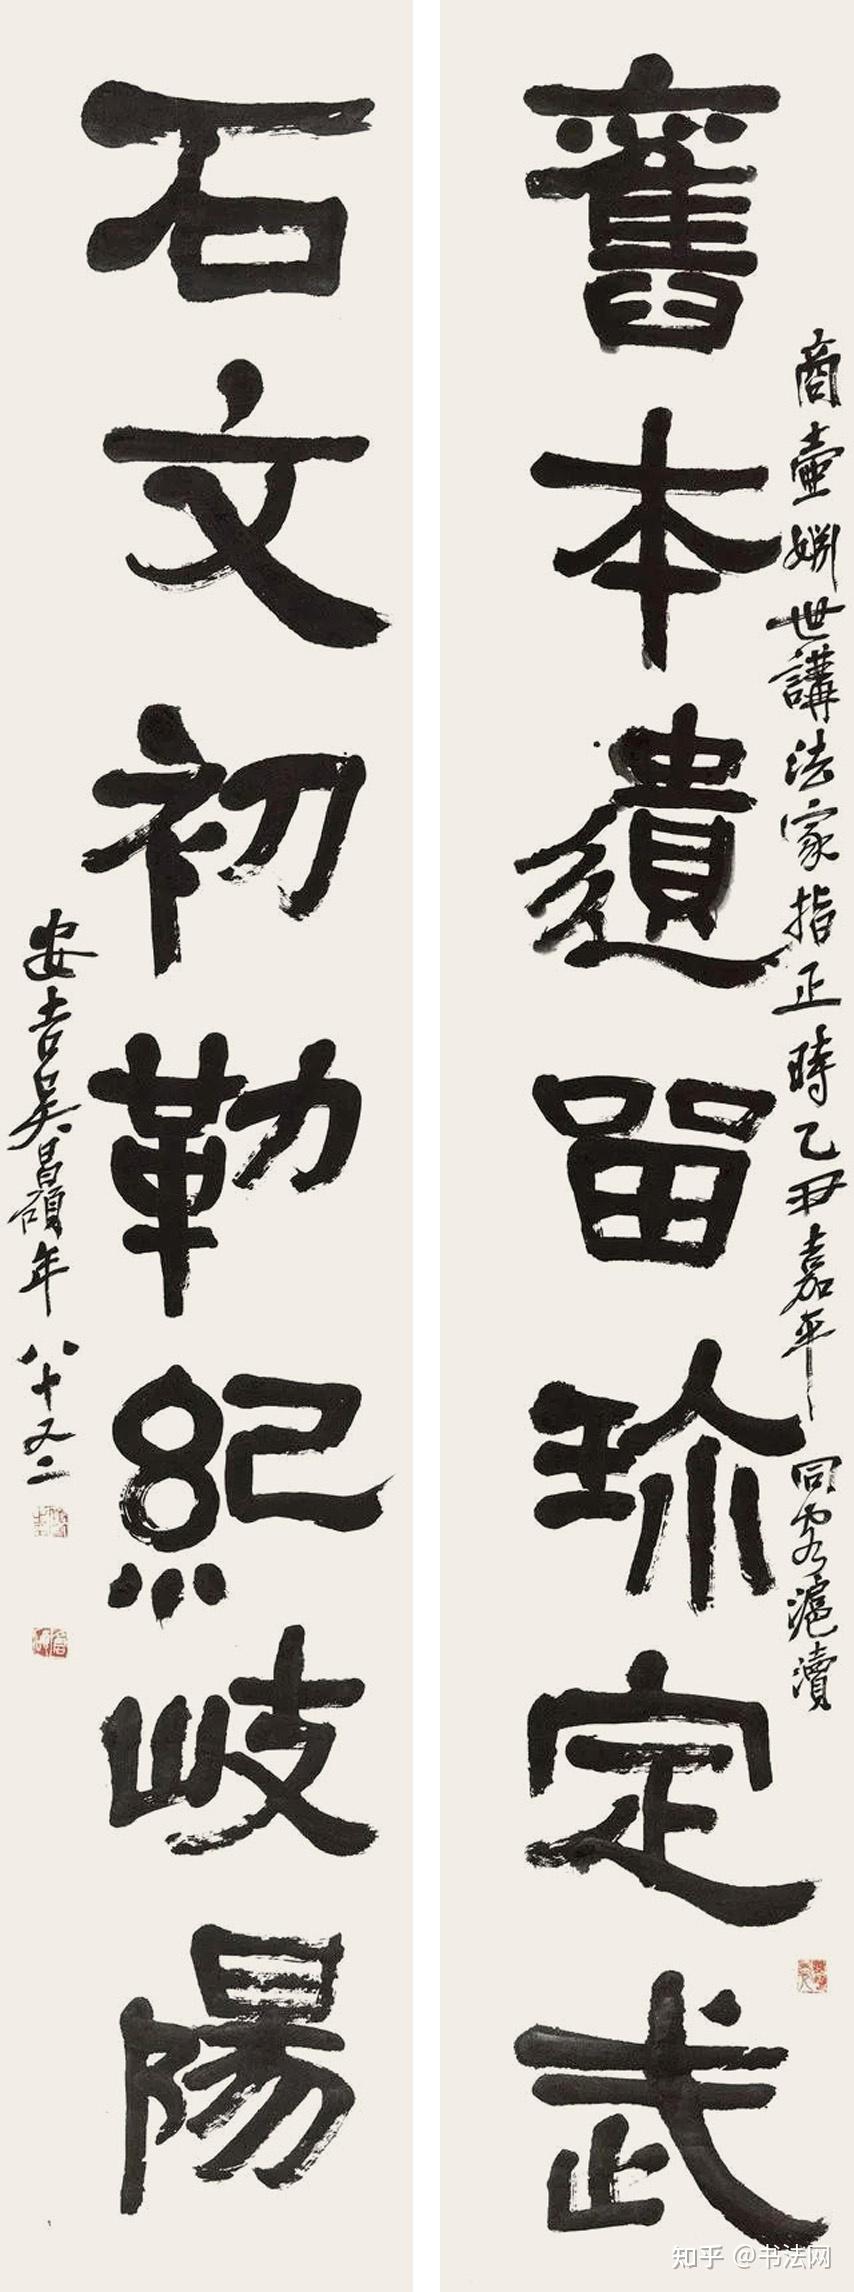 舊本遺留珍定武
商壺嫻世講法家指正時乙丑嘉平同客滬瀆
石文初勒紀岐陽
安吉吳昌碩年八十又二
知乎 @书法网